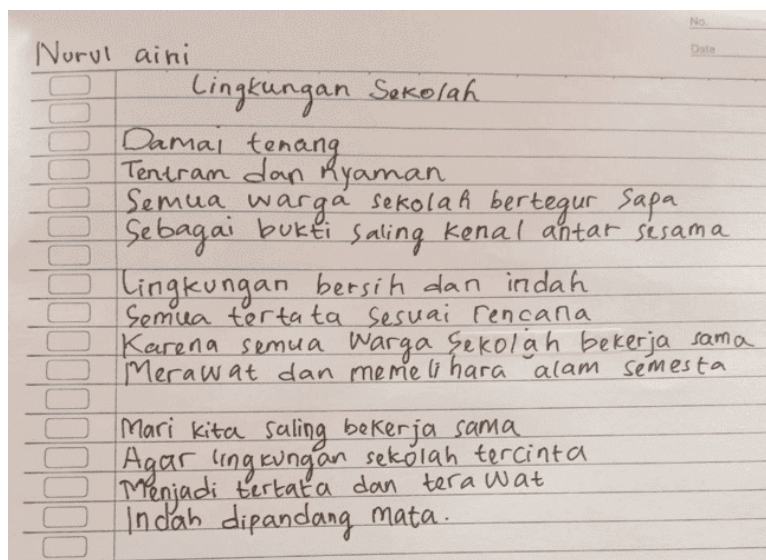 No.
Date
Nurul aini
Lingkungan Sekolah
Damai tenang
Tentram dan Nyaman
Semua warga sekolah bertegur sapa
Sebagai bukti saling kenal antar sesama
Lingkungan bersih dan indah
Semua tertata sesuai rencana
Karena semua warga sekolah bekerja sama
Merawat dan memelihara alam semesta
Mari kita saling bekerja sama
Agar lingkungan sekolah tercinta
Menjadi tertata dan terawat
Indah dipandang mata.